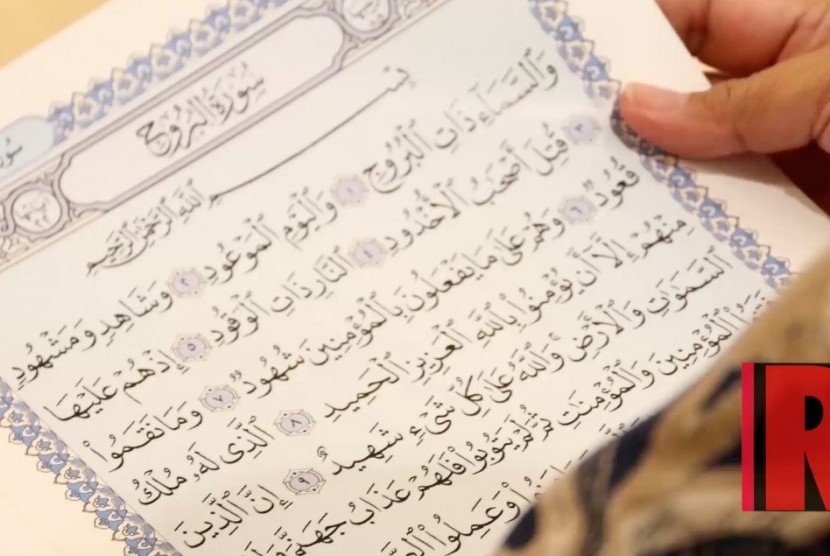 سُورَةُ الۡبُرُوجِ
بِسۡمِ ٱللَّهِ ٱلرَّحۡمَٰنِ ٱلرَّحِيمِ
وَٱلسَّمَآءِ ذَاتِ ٱلۡبُرُوجِ ١ وَٱلۡيَوۡمِ ٱلۡمَوۡعُودِ ٢ وَشَاهِدٖ وَمَشۡهُودٖ
٣ قُتِلَ أَصۡحَٰبُ ٱلۡأُخۡدُودِ ٤ ٱلنَّارِ ذَاتِ ٱلۡوَقُودِ ٥ إِذۡ هُمۡ عَلَيۡهَا
قُعُودٞ ٦ وَهُمۡ عَلَىٰ مَا يَفۡعَلُونَ بِٱلۡمُؤۡمِنِينَ شُهُودٞ ٧ وَمَا نَقَمُواْ
مِنۡهُمۡ إِلَّآ أَن يُؤۡمِنُواْ بِٱللَّهِ ٱلۡعَزِيزِ ٱلۡحَمِيدِ ٨ ٱلَّذِي لَهُۥ مُلۡكُ
ٱلسَّمَٰوَٰتِ وَٱلۡأَرۡضِۚ وَٱللَّهُ عَلَىٰ كُلِّ شَيۡءٖ شَهِيدٌ ٩ إِنَّ ٱلَّذِينَ
ٱلۡمُؤۡمِنِينَ وَٱلۡمُؤۡمِنَٰتِ ثُمَّ لَمۡ يَتُوبُواْ فَلَهُمۡ عَذَابُ جَهَنَّمَ
وَعَمِلُواْ
R